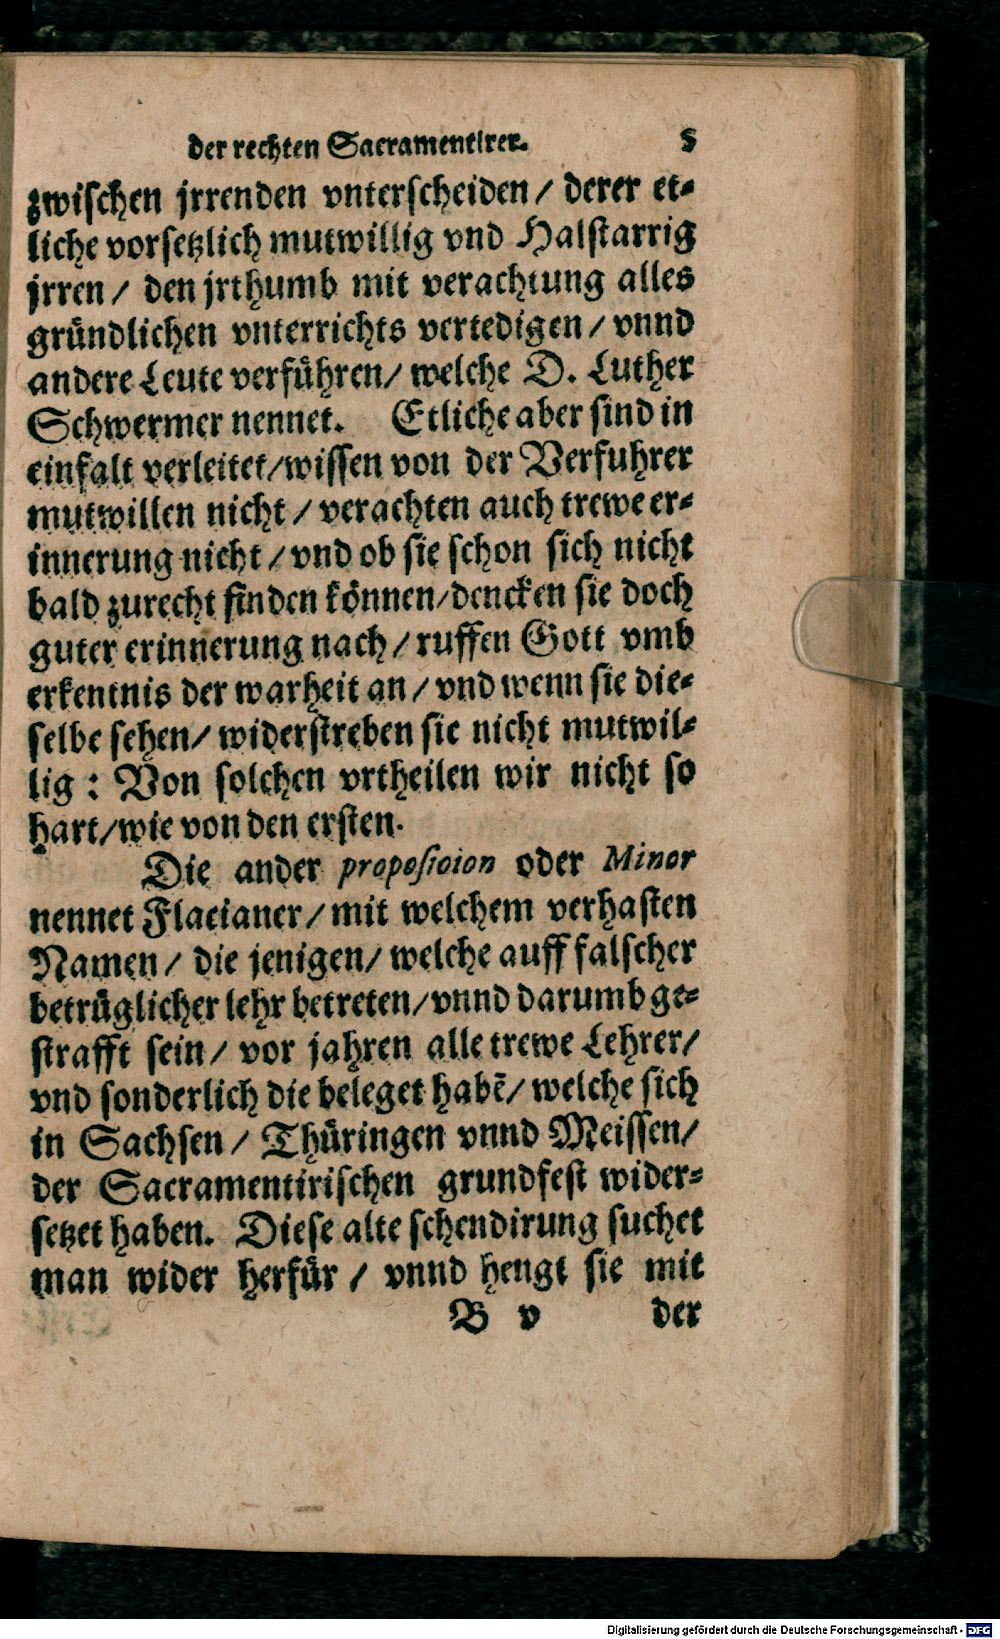 der rechten Sacramentirer. 5
zwischen jrrenden vnterscheiden / derer et-
liche vorsetzlich mutwillig vnd Halstarrig
jrren / den jrthumb mit verachtung alles
gründlichen vnterrichts vertedigen / vnnd
andere Leute verführen / welche D. Luther
Schwermer nennet. Etliche aber sind in
einfalt verleitet / wissen von der Verfuhrer
mutwillen nicht / verachten auch trewe er-
innerung nicht / vnd ob sie schon sich nicht
bald zurecht finden können / dencken sie doch
guter erinnerung nach / ruffen Gott vmb
erkentnis der warheit an / vnd wenn sie die-
selbe sehen / widerstreben sie nicht mutwil-
lig : Von solchen vrtheilen wir nicht so
hart / wie von den ersten.
Die ander proposicion oder Minor
nennet Flacianer / mit welchem verhasten
Namen / die jenigen / welche auff falscher
betrüglicher lehr betreten / vnnd darumb ge-
strafft sein / vor jahren alle trewe Lehrer /
vnd sonderlich die beleget habē / welche sich
in Sachsen / Thüringen vnnd Meissen /
der Sacramentirischen grundfest wider-
setzet haben. Diese alte schendirung suchet
man wider herfür / vnnd hengt sie mit
B v der
Digitalisierung gefördert durch die Deutsche Forschungsgemeinschaft - DFG